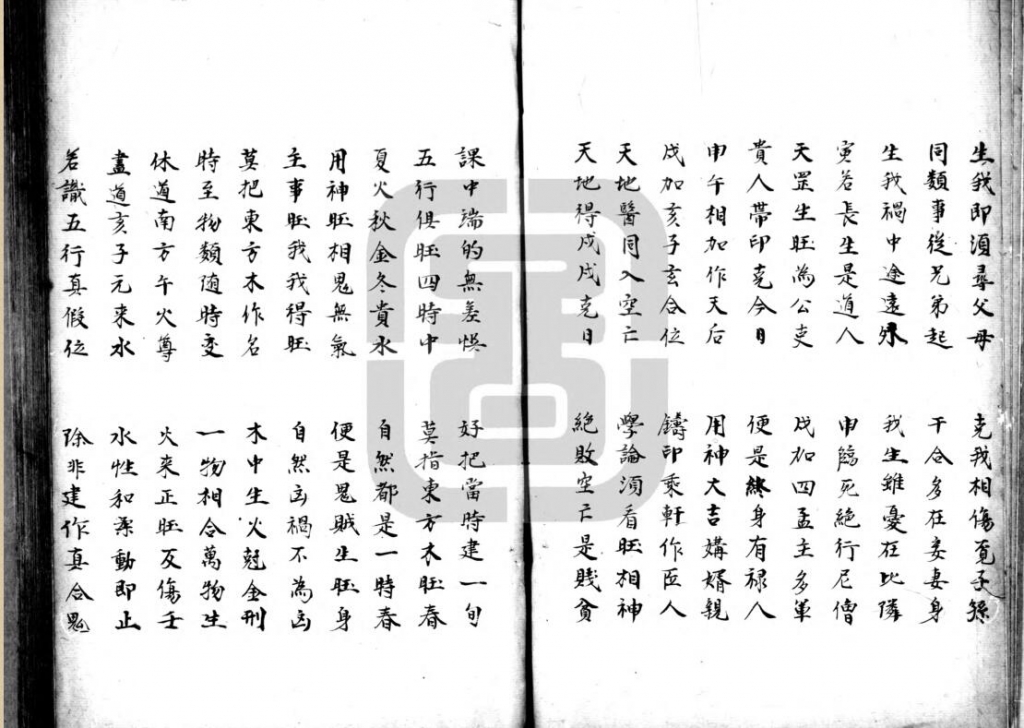 生我即須尋父母　克我相傷覓子孫
同類事從兄弟起　干合多在妾妻身
生我禍中途遠外　我生雖憂在比隣
寅若長生是道人　申臨死絕行尼僧
天罡生旺為公吏　戌加四孟主多軍
貴人帶印克今日　便是終身有禄人
申午相加作天后　用神大吉媾婿親
戌加亥子玄合位　鑄印乘軒作匠人
天地醫同入空亡　學論須看旺相神
天地得戌戌克日　絕敗空亡是賤貧
課中端的無差悮　好把當時建一旬
五行俱旺四時中　莫指東方木旺春
夏火秋金冬貴水　自然都是一時春
用神旺相鬼無氣　便是鬼賊生旺身
主事旺我我得旺　自然凶禍不為凶
莫把東方木作名　木中生火尅金刑
時至物類隨時变　一物相合萬物生
休道南方午火尊　火來正旺反傷壬
盡道亥子元來水　水性和柔動即止
若識五行真假位　除非建作真合鬼